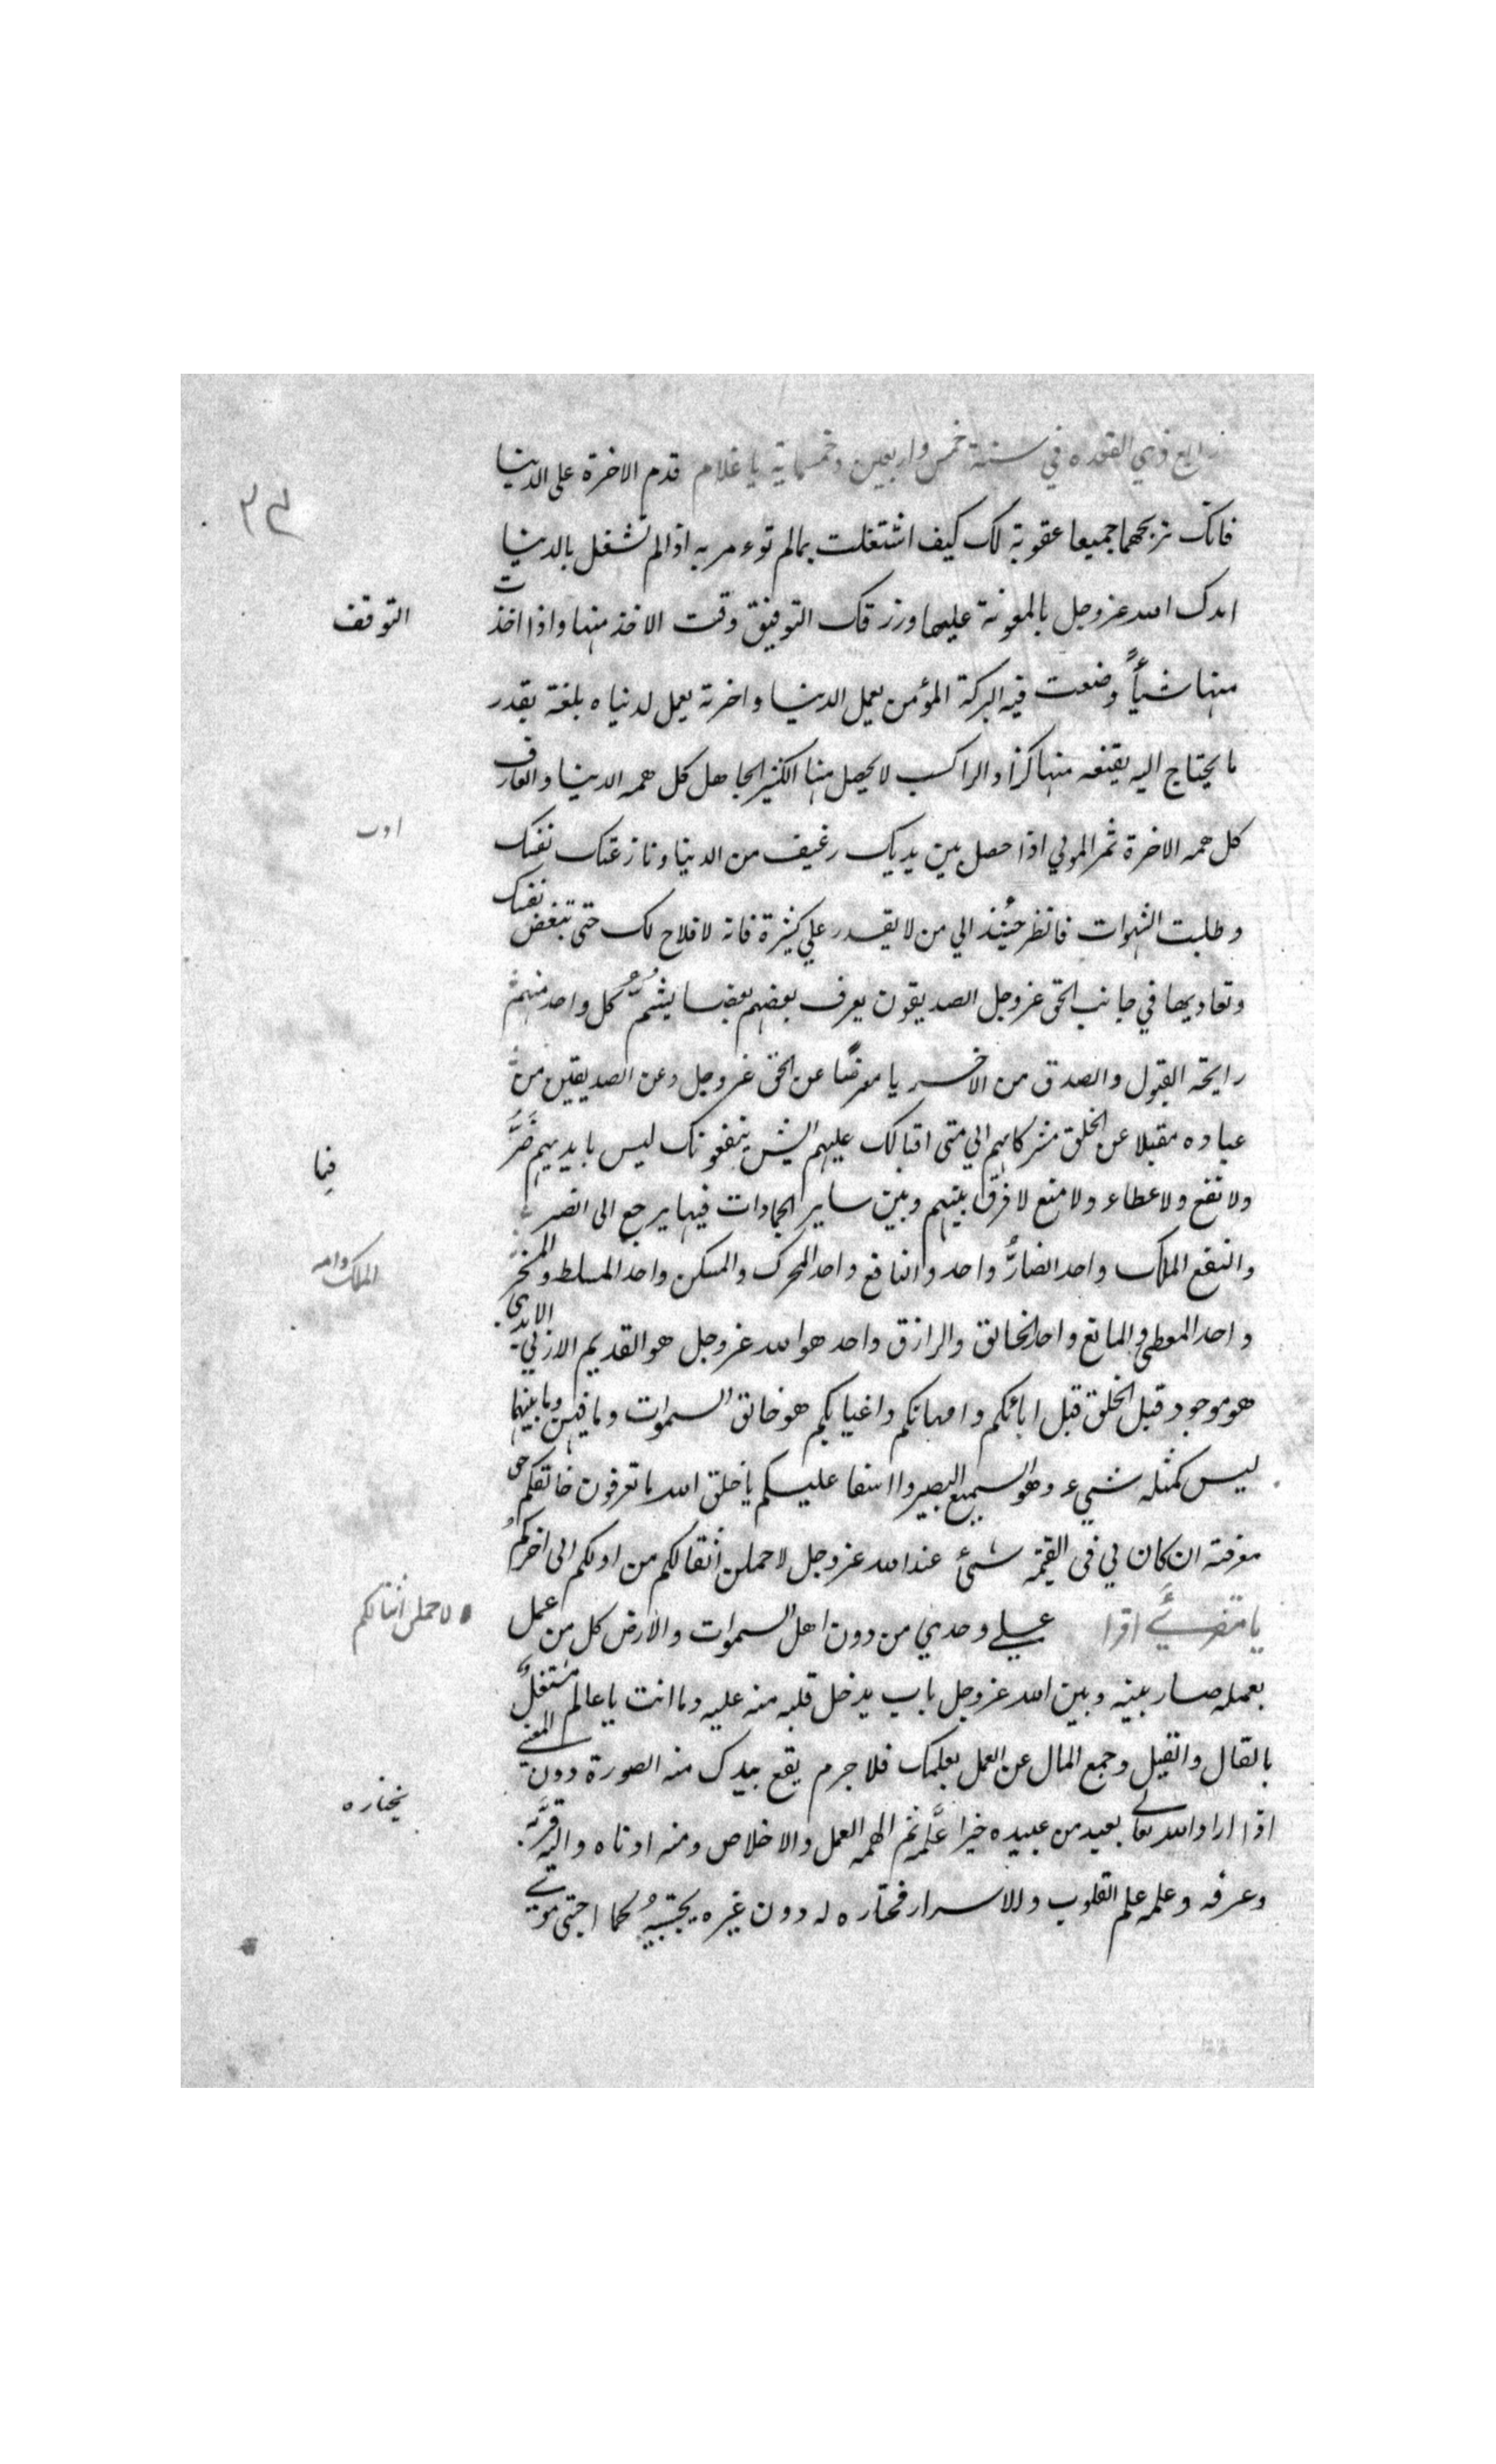 رابع ذي القعده في سنة خمس واربعين وخمسماية يا غلام قدم الاخرة على الدنيا
فانك تربحهما جميعا عقوبة لك كيف اشتغلت بمالم توءمر به اذا لم تشغل بالدنيا
امدك الله عزوجل بالمعونة عليها ورزقك التوفيق وقت الاخذ منها واذا اخذت
منها شيأً وضعت فيه البركة المؤمن يعمل الدنيا واخرته يعمل لدنياه بلغة بقدر
ما يحتاج اليه يقنعه منها كزاد الراكب لا يحصل منها الكثير الجاهل كل همه الدنيا والعارف
كل همه الاخرة ثم المولي اذا حصل بين يديك رغيف من الدنيا ونازعتك نفسك
وطلبت الشهوات فانظر حينئذ الي من لا يقدر علي كثيرة فانه لا فلاح لك حتى تبغض نفسك
وتعاديها في جانب الحق عزوجل الصديقون يعرف بعضهم بعضا يشمّ كل واحد منهم
رايحة القبول والصدق من الاخر يا معرضًا عن الحق عزوجل وعن الصديقين من
عباده مقبلا عن الخلق مشركا بهم الي متى اقبالك عليهم ايش ينفعونك ليس بايديهم ضَرُّ
ولا نفع ولا عطاء ولا منع لا فرق بينهم وبين ساير الجمادات فيها يرجع الى الضر
والنفع الملك واحد الضارُّ واحد والنافع واحد المحرك والمسكن واحد المسلط والمسخر
واحد المعطي والمانع واحد الخالق والرازق واحد هو الله عزوجل هو القديم الازلي الابدي
هو موجود قبل الخلق قبل ابائكم وامهاتكم واغيايكم هو خالق السموات وما فيهن وما بينهما
ليس كمثله شيء وهو السميع البصير وااسفا عليكم يا خلق الله ما تعرفون خالقكم حق
معرفته ان كان لي في القيمة شئ عند الله عزوجل لاحملن اثقالكم من اولكم الى اخركم
يا مقرئ اقرا علي وحدي من دون اهل السموات والارض كل من عمل
بعمله صار بينه وبين الله عزوجل باب يدخل قلبه منه عليه وما انت يا عالم مشتغل
بالقال والقيل وجمع المال عن العمل بعلمك فلا جرم يقع بيدك منه الصورة دون المعني
اذا اراد الله تعالى بعبد من عبيده خيرا علَّمه ثم الهمه العمل والاخلاص ومنه ادناه واليه قرَّبه
وعرفه وعلمه علم القلوب والاسرار فختاره له دون غيره يجتبيهُ كما اجتبى موسي
التوقف
ادب
فيما
الملك
لاحملن اثقالكم
يختاره